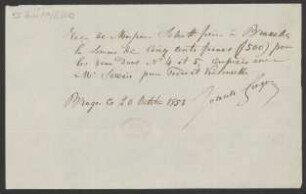 Reçu de Monsieur Schott frères à Bruxelles
la somme de Cinq cents francs (f 500) pour
les deux Duos Nº 4 et 5, composés avec
Mr Servais pour Violon et Violoncelle
Bruges le 20 Octobre 1853